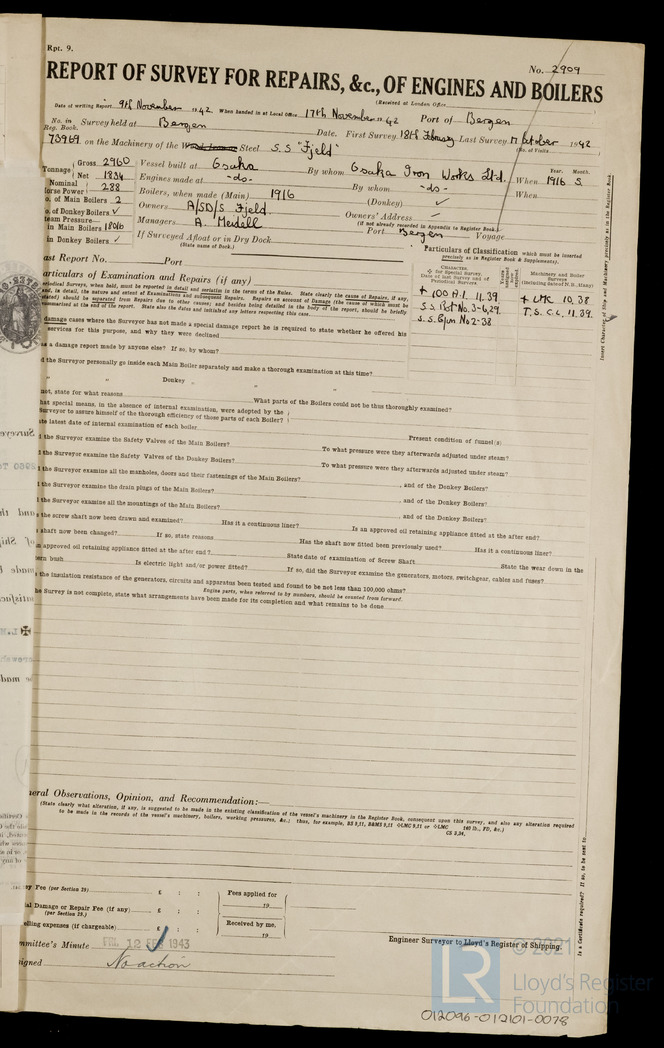 Rpt. 9.
No. 2909
REPORT OF SURVEY FOR REPAIRS, &c., OF ENGINES AND BOILERS
(Received at London Office
Date of writing Report 9th November 1942 When handed in at Local Office 17th November 1942 Port of Bergen
No. in Reg. Book. Survey held at Bergen Date. First Survey 18th February Last Survey 17 October 1942
(No. of Visits
73969 on the Machinery of the Steel S.S "Fjeld"
Tonnage Gross 2960 Net 1834
Vessel built at Osaka By whom Osaka Iron Works Ltd. When 1916 Year. 5 Month.
Engines made at -do- By whom -do- When
Nominal Horse Power 288
Boilers, when made (Main) 1916 (Donkey) ✓
o. of Main Boilers 2
Owners A/S D/S Fjeld. Owners' Address —
(if not already recorded in Appendix to Register Book.)
o. of Donkey Boilers ✓
Managers A. Meidell Port Bergen Voyage
team Pressure—
in Main Boilers 180 lb
in Donkey Boilers ✓
If Surveyed Afloat or in Dry Dock
(State name of Dock.)
ast Report No. Port
Particulars of Classification which must be inserted precisely as in Register Book & Supplements).
CHARACTER.
✠ for Special Survey.
Date of last Survey and of Periodical Surveys.
Years assigned
Machinery and Boiler Surveys
(Including date of N.B., if any)
+ 100 A.1. 11.39
S.S. Pst No. 3-6,29.
S.S. Bgn No 2-38
+ LMC 10.38
T.S. C.L. 11.39.
articulars of Examination and Repairs (if any)
eriodical Surveys, when held, must be reported in detail and seriatim in the terms of the Rules. State clearly the cause of Repairs, if any,
and, in detail, the nature and extent of Examinations and subsequent Repairs. Repairs on account of Damage (the cause of which must be
stated) should be separated from Repairs due to other causes; and besides being detailed in the body of the report, should be briefly
summarised at the end of the report. State also the dates and initials of any letters respecting this case.
damage cases where the Surveyor has not made a special damage report he is required to state whether he offered his
services for this purpose, and why they were declined
s a damage report made by anyone else? If so, by whom?
d the Surveyor personally go inside each Main Boiler separately and make a thorough examination at this time?
" " Donkey " " "
not, state for what reasons What parts of the Boilers could not be thus thoroughly examined?
hat special means, in the absence of internal examination, were adopted by the
Surveyor to assure himself of the thorough efficiency of those parts of each Boiler?
ate latest date of internal examination of each boiler Present condition of funnel(s)
d the Surveyor examine the Safety Valves of the Main Boilers? To what pressure were they afterwards adjusted under steam?
d the Surveyor examine the Safety Valves of the Donkey Boilers? To what pressure were they afterwards adjusted under steam?
d the Surveyor examine all the manholes, doors and their fastenings of the Main Boilers? , and of the Donkey Boilers?
d the Surveyor examine the drain plugs of the Main Boilers? , and of the Donkey Boilers?
d the Surveyor examine all the mountings of the Main Boilers? , and of the Donkey Boilers?
s the screw shaft now been drawn and examined? Has it a continuous liner? Is an approved oil retaining appliance fitted at the after end?
shaft now been changed? If so, state reasons Has the shaft now fitted been previously used? Has it a continuous liner?
n approved oil retaining appliance fitted at the after end? State date of examination of Screw Shaft State the wear down in the
ern bush Is electric light and/or power fitted? If so, did the Surveyor examine the generators, motors, switchgear, cables and fuses?
s the insulation resistance of the generators, circuits and apparatus been tested and found to be not less than 100,000 ohms?
Engine parts, when referred to by numbers, should be counted from forward.
he Survey is not complete, state what arrangements have been made for its completion and what remains to be done
neral Observations, Opinion, and Recommendation:—
(State clearly what alteration, if any, is suggested to be made in the existing classification of the vessel's machinery in the Register Book, consequent upon this survey, and also any alteration required
to be made in the records of the vessel's machinery, boilers, working pressures, &c.; thus, for example, BS 9,11, B&MS 9,11 ✠LMC 9,11 or ✠LMC 140 lb., FD, &c.)
CS 3,34.
vey Fee (per Section 29) £ : : Fees applied for
19
ial Damage or Repair Fee (if any) £ : :
(per Section 29.)
Received by me,
19
elling expenses (if chargeable) £ : :
Engineer Surveyor to Lloyd's Register of Shipping.
mmittee's Minute FRI. 12 FEB 1943
signed No action
Is a Certificate required? If so, to be sent to
LR
© 2021
Lloyd's Register
Foundation
012096-012101-0078